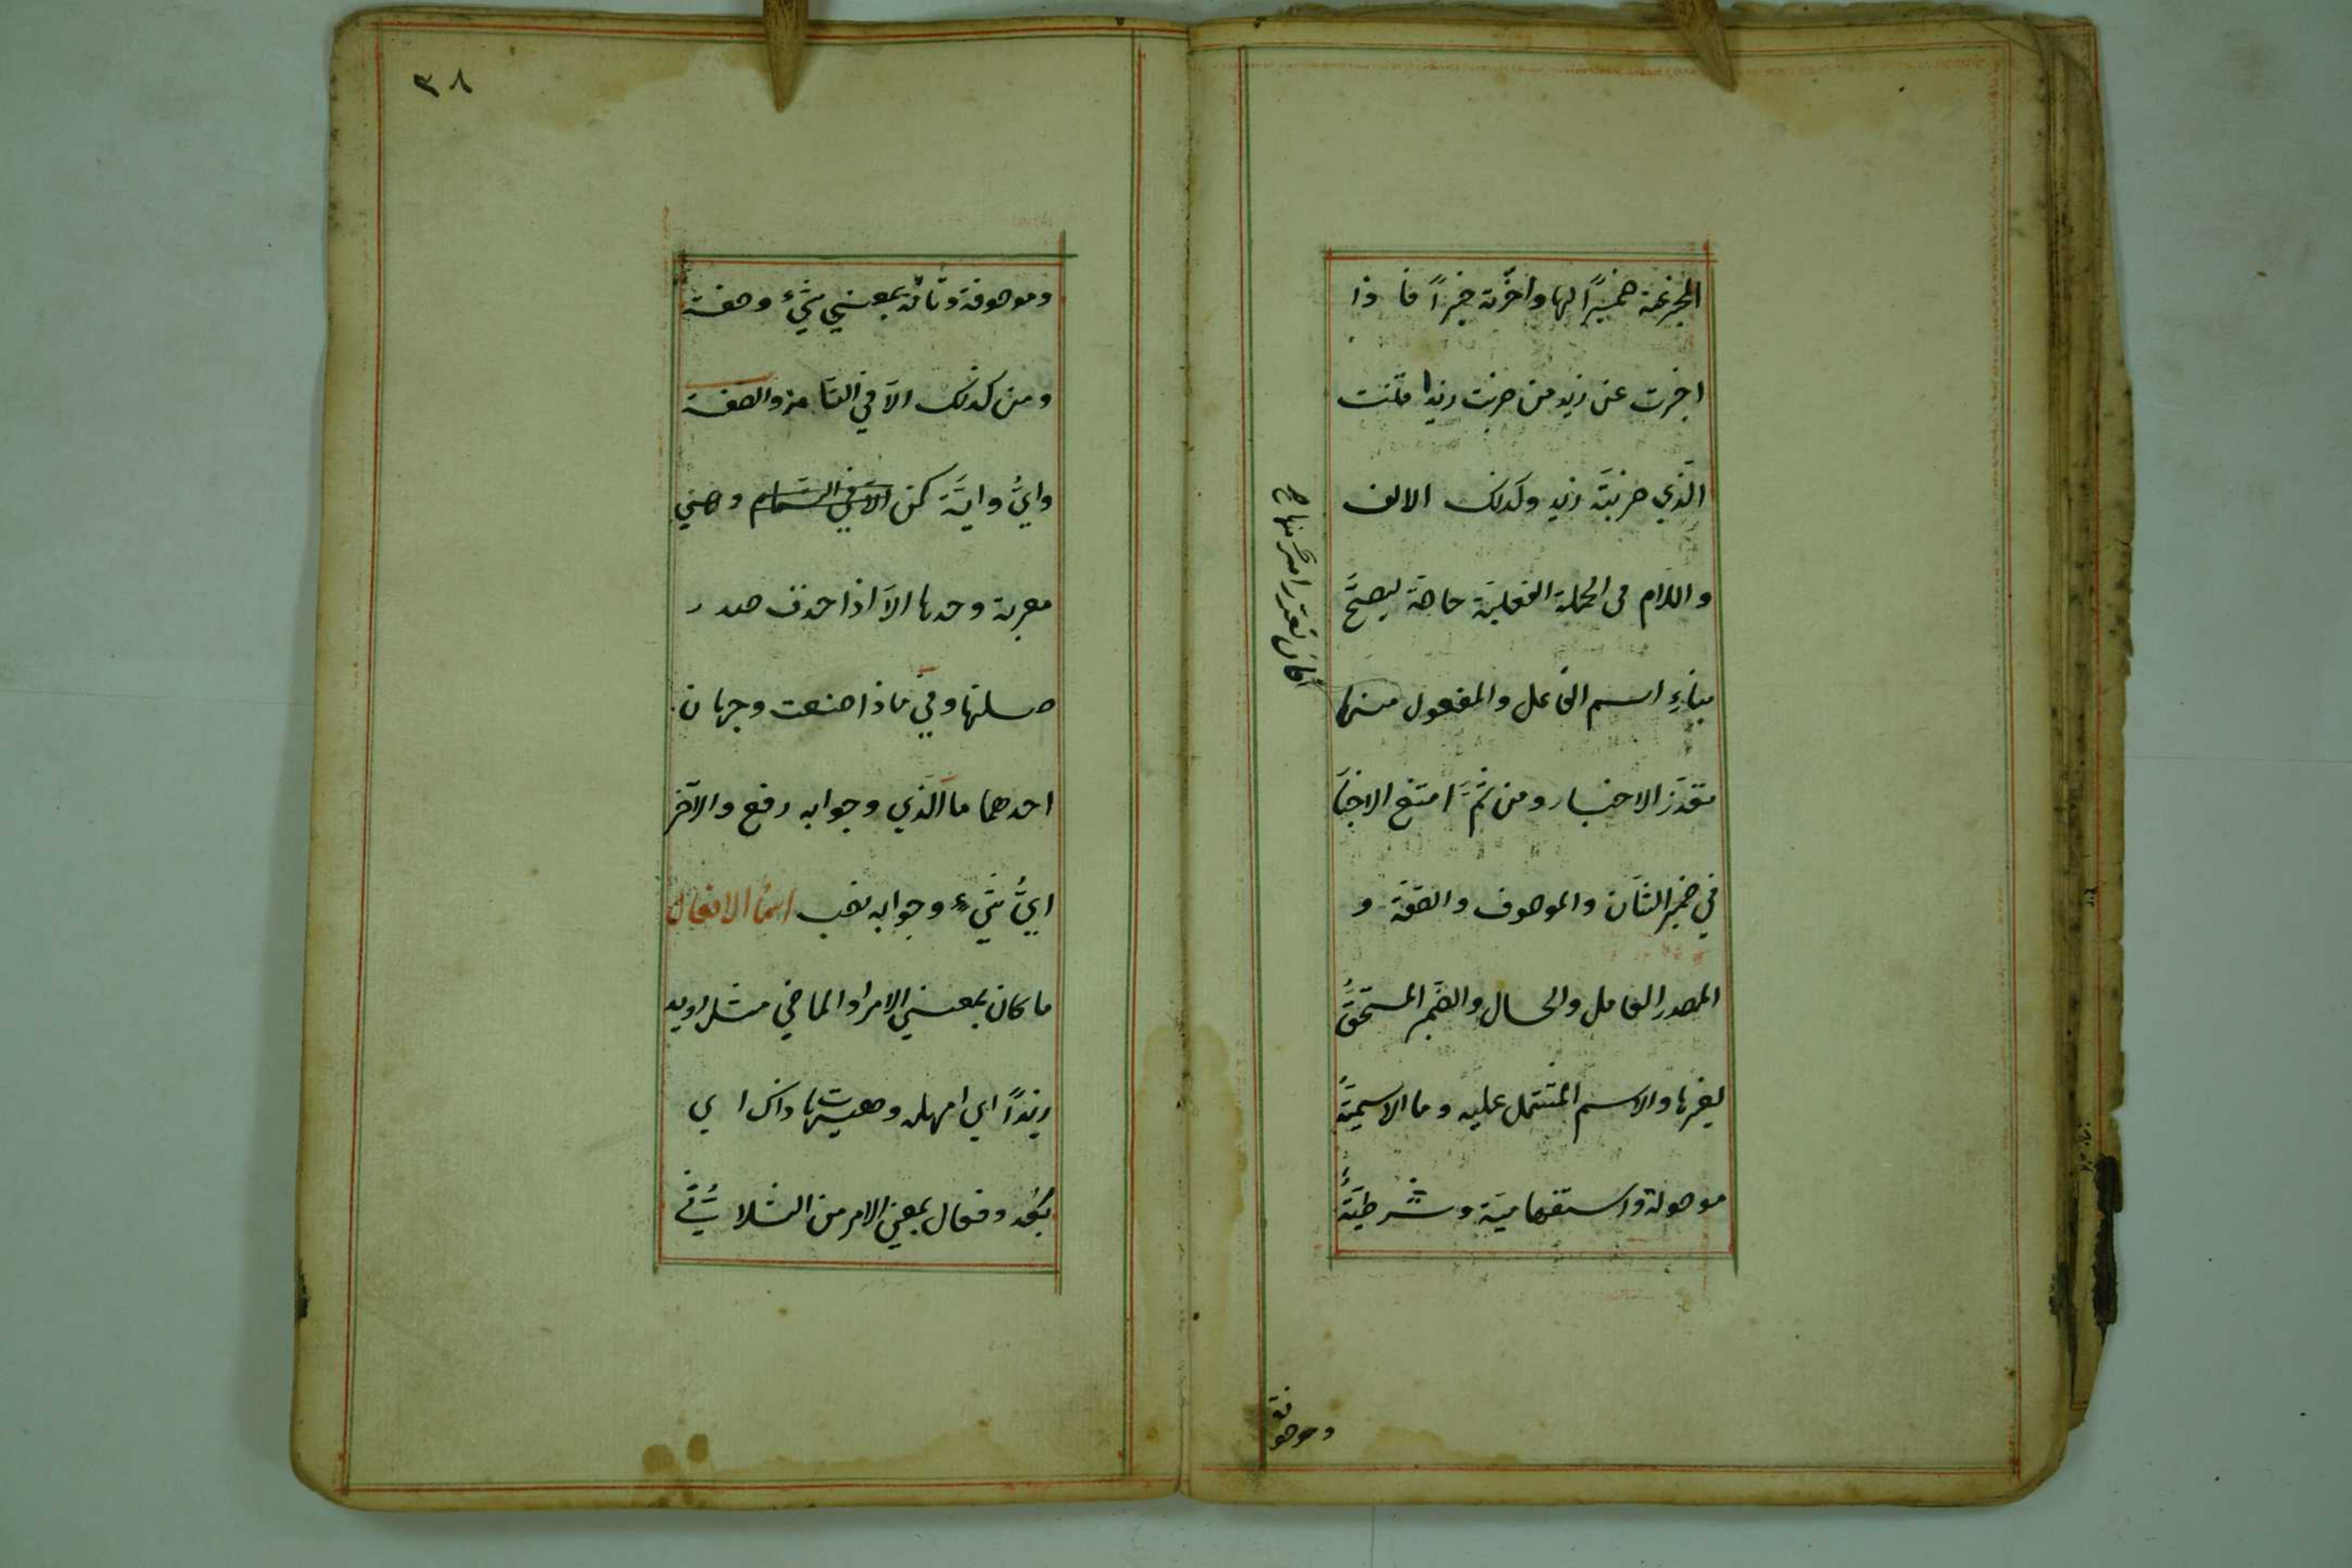 المخبر عنه ضميرًا لها واخّرته خبرًا فاذا
اخبرت عن زيد من ضربت زيدا قلت
الّذي ضربته زيد وكذلك الالف
واللام في الجملة الفعليّة خاصّة ليصحّ
بناءِ اسم الفاعل والمفعول منها
فان تعذّر امر منها ح
تعذّر الاخبار ومن ثَمَّ امتنع الاخبا
في ضمير الشّان والموصوف والصّفة و
المصدر العامل والحال والضمير المستحقُّ
لغيرها والاسم المشتمل عليه وما الاسميّةُ
موصولة واستفهاميّة وشرطيّةٌ
وموصوفة
٣٨
وموصوفة وتامّة بمعني شيءٌ وصفة
ومن كذلك الّا في التّامة والصّفة
وايٌّ وايّةٌ كمن الّا في التمام وهي
معربة وحدها الّا اذا حذف صدر
صلتها وفي ماذا صنعت وجهان
احدهما ما الّذي وجوابه رفع والآخر
ايُّ شيءٍ وجوابه نصب اسماُ الافعال
ما كان بمعني الامر او الماضي مثل رويد
زيدًا اي امهله وهيهات ذاك اي
بَعُد وفعال بمعني الامر من الثلاثي